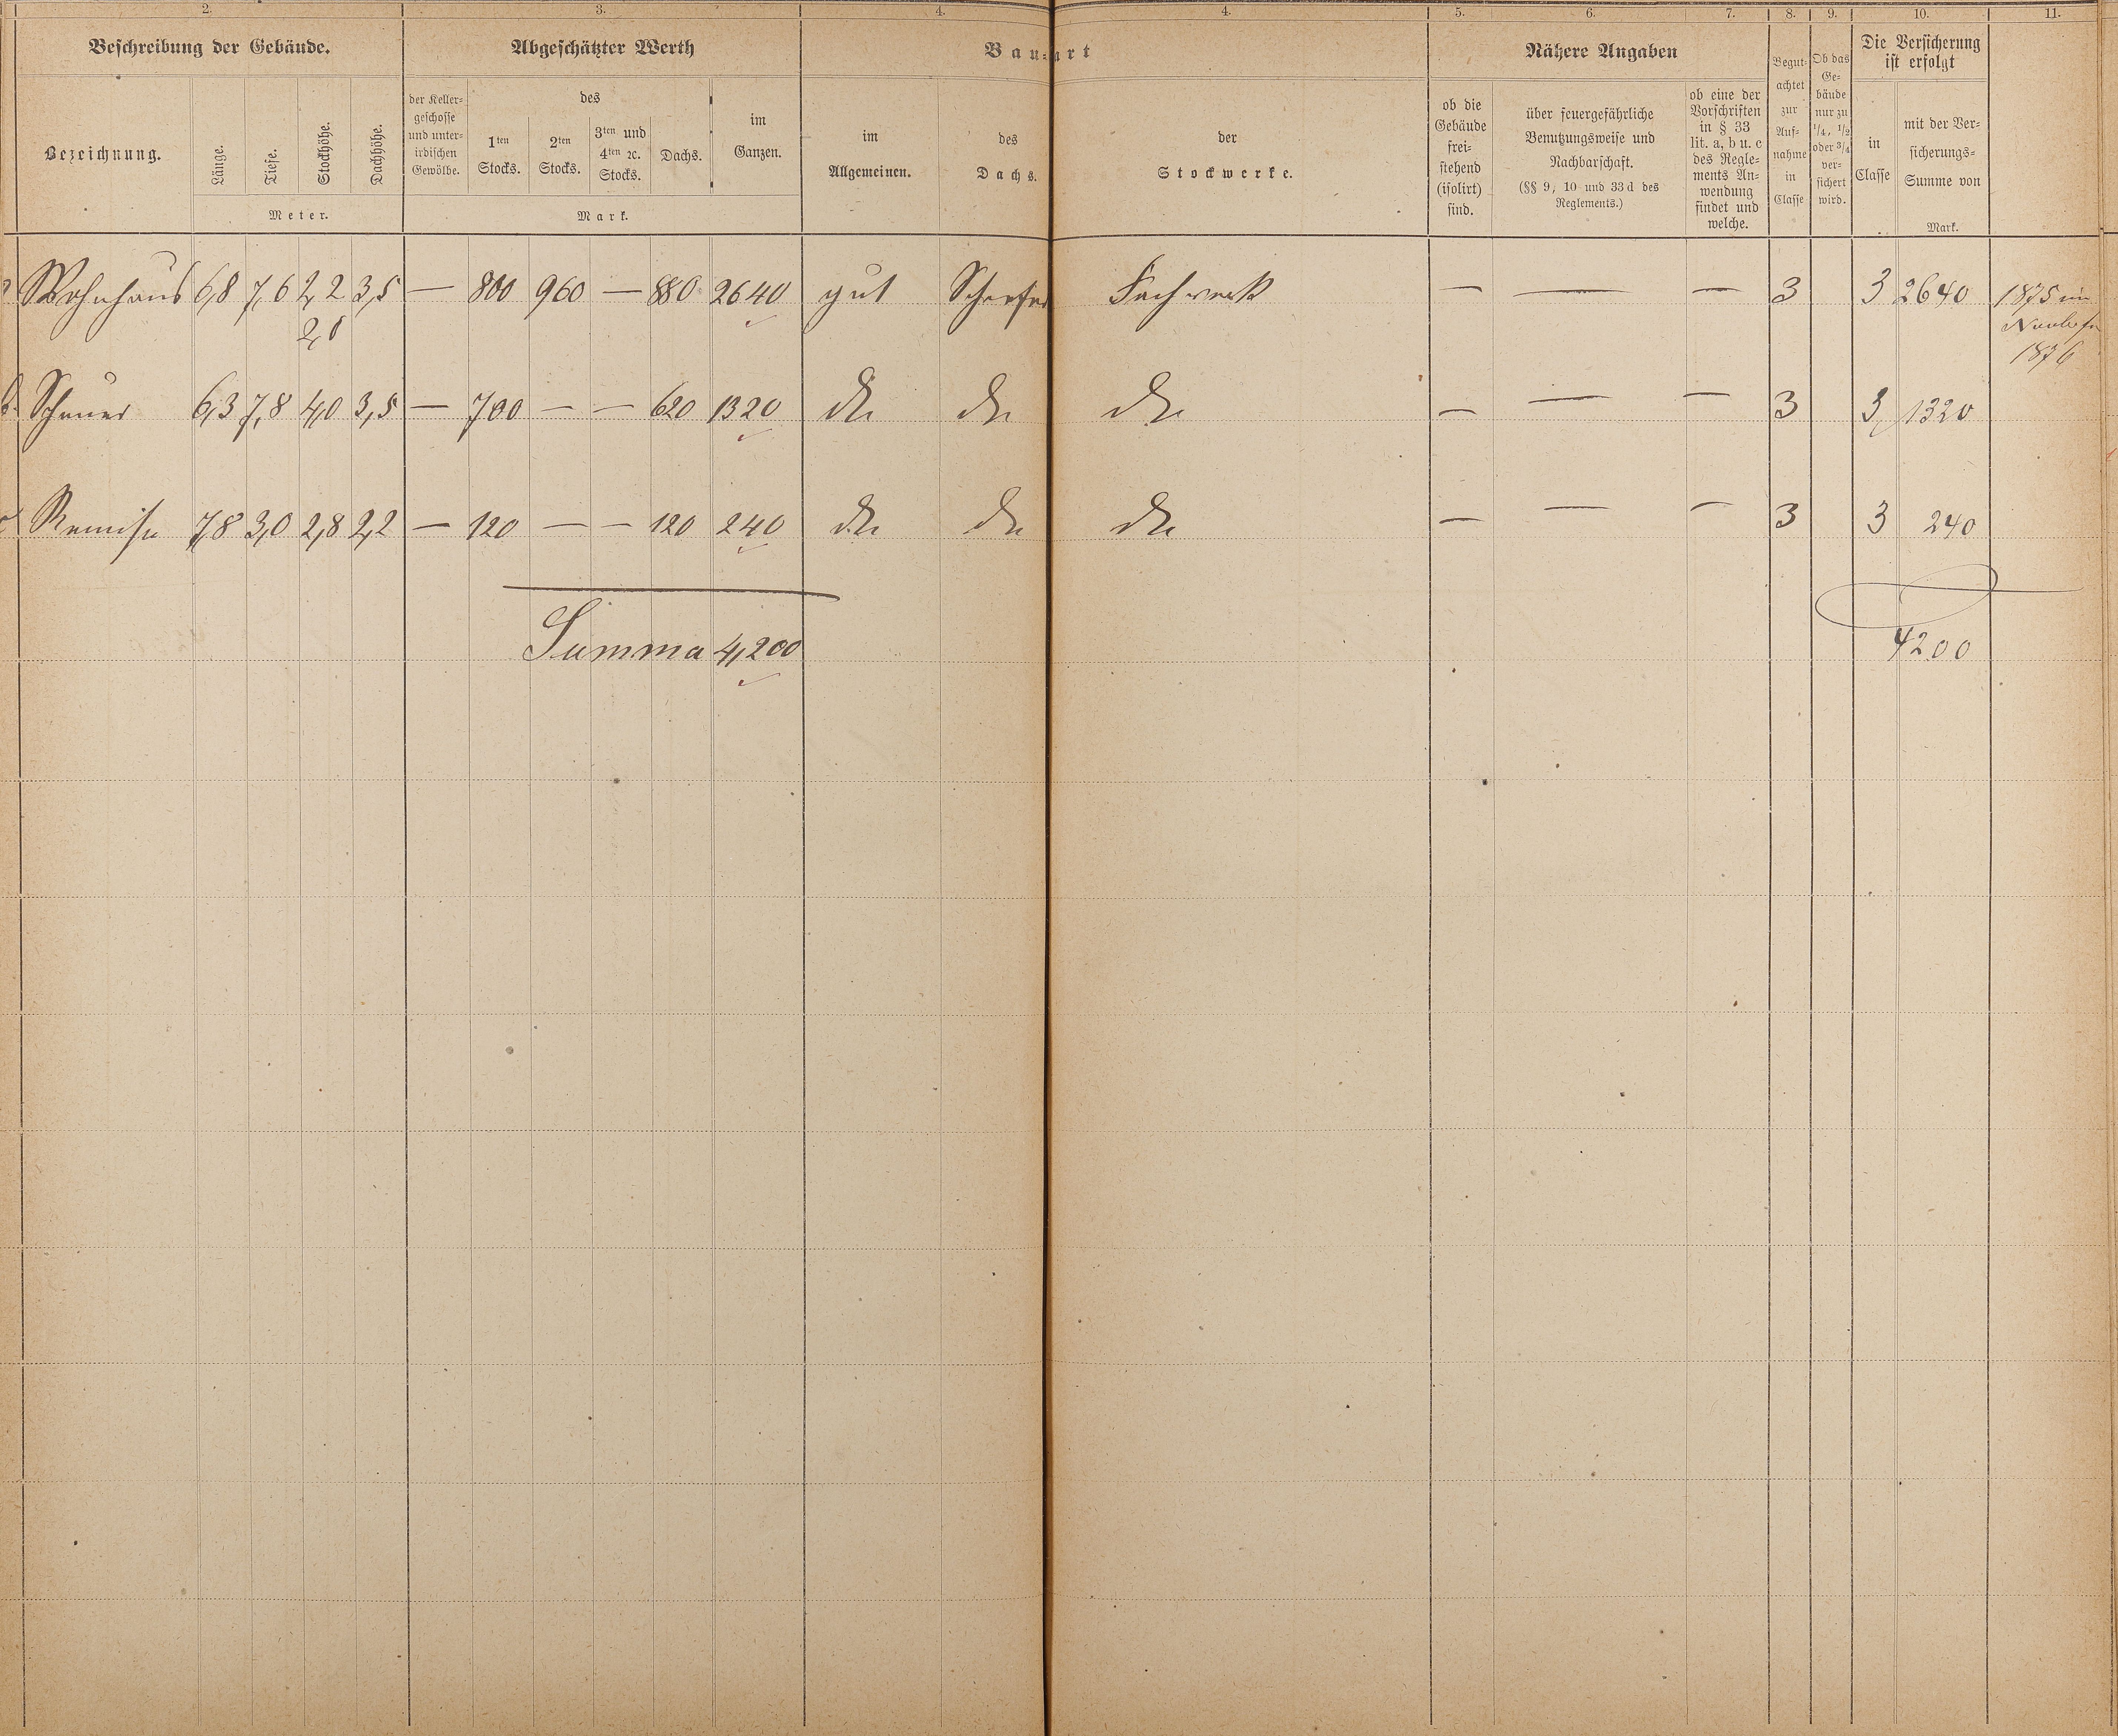 2. 3. 4. 4. 5. 6. 7. 8. 9. 10. 11.
Beschreibung der Gebäude.
Abgeschätzter Werth
Bau-art
Nähere Angaben
Begut-
achtet
zur
Auf-
nahme
in
Classe
Ob das
Ge-
bäude
nur zu
1/4, 1/2
oder 3/4
ver-
sichert
wird.
Die Versicherung
ist erfolgt
Bezeichnung.
Länge.
Tiefe.
Stockhöhe.
Dachhöhe.
Meter.
der Keller-
geschosse
und unter-
irdischen
Gewölbe.
des
1ten
Stocks.
2ten
Stocks.
3ten und
4ten ꝛc.
Stocks.
Dachs.
im
Ganzen.
Mark.
im
Allgemeinen.
des
Dachs.
der
Stockwerke.
ob die
Gebäude
frei-
stehend
(isolirt)
sind.
über feuergefährliche
Benutzungsweise und
Nachbarschaft.
(§§ 9, 10 und 33 d des
Reglements.)
ob eine der
Vorschriften
in § 33
lit. a, b u. c
des Regle-
ments An-
wendung
findet und
welche.
in
Classe
mit der Ver-
sicherungs-
Summe von
Mark.
Wohnhaus 6,8 7,6 2,2 3,5 — 800 960 — 880 2640 gut Schiefer Fachwerk — — — 3 3 2640 1875 im
2,0
1876
b. Scheuer 6,3 7,8 4,0 3,5 — 700 — — 620 1320 dto dto dto — — — 3 3 1320
Remise 7,8 3,0 2,8 2,2 — 120 — — 120 240 dto dto dto — — — 3 3 240
Summa 4,200 4200